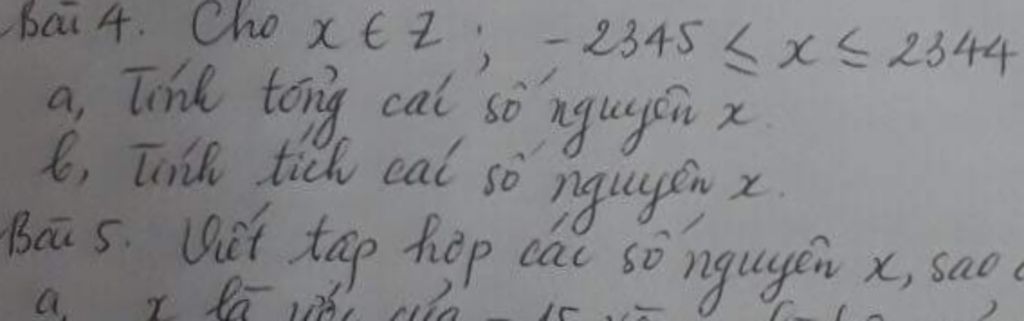 Bài 4. Cho x ∈ Z ; -2345 ≤ x ≤ 2344
a, Tính tổng các số nguyên x.
b, Tính tích các số nguyên x.
Bài 5. Viết tập hợp các số nguyên x, sao
a, x là ước của -15